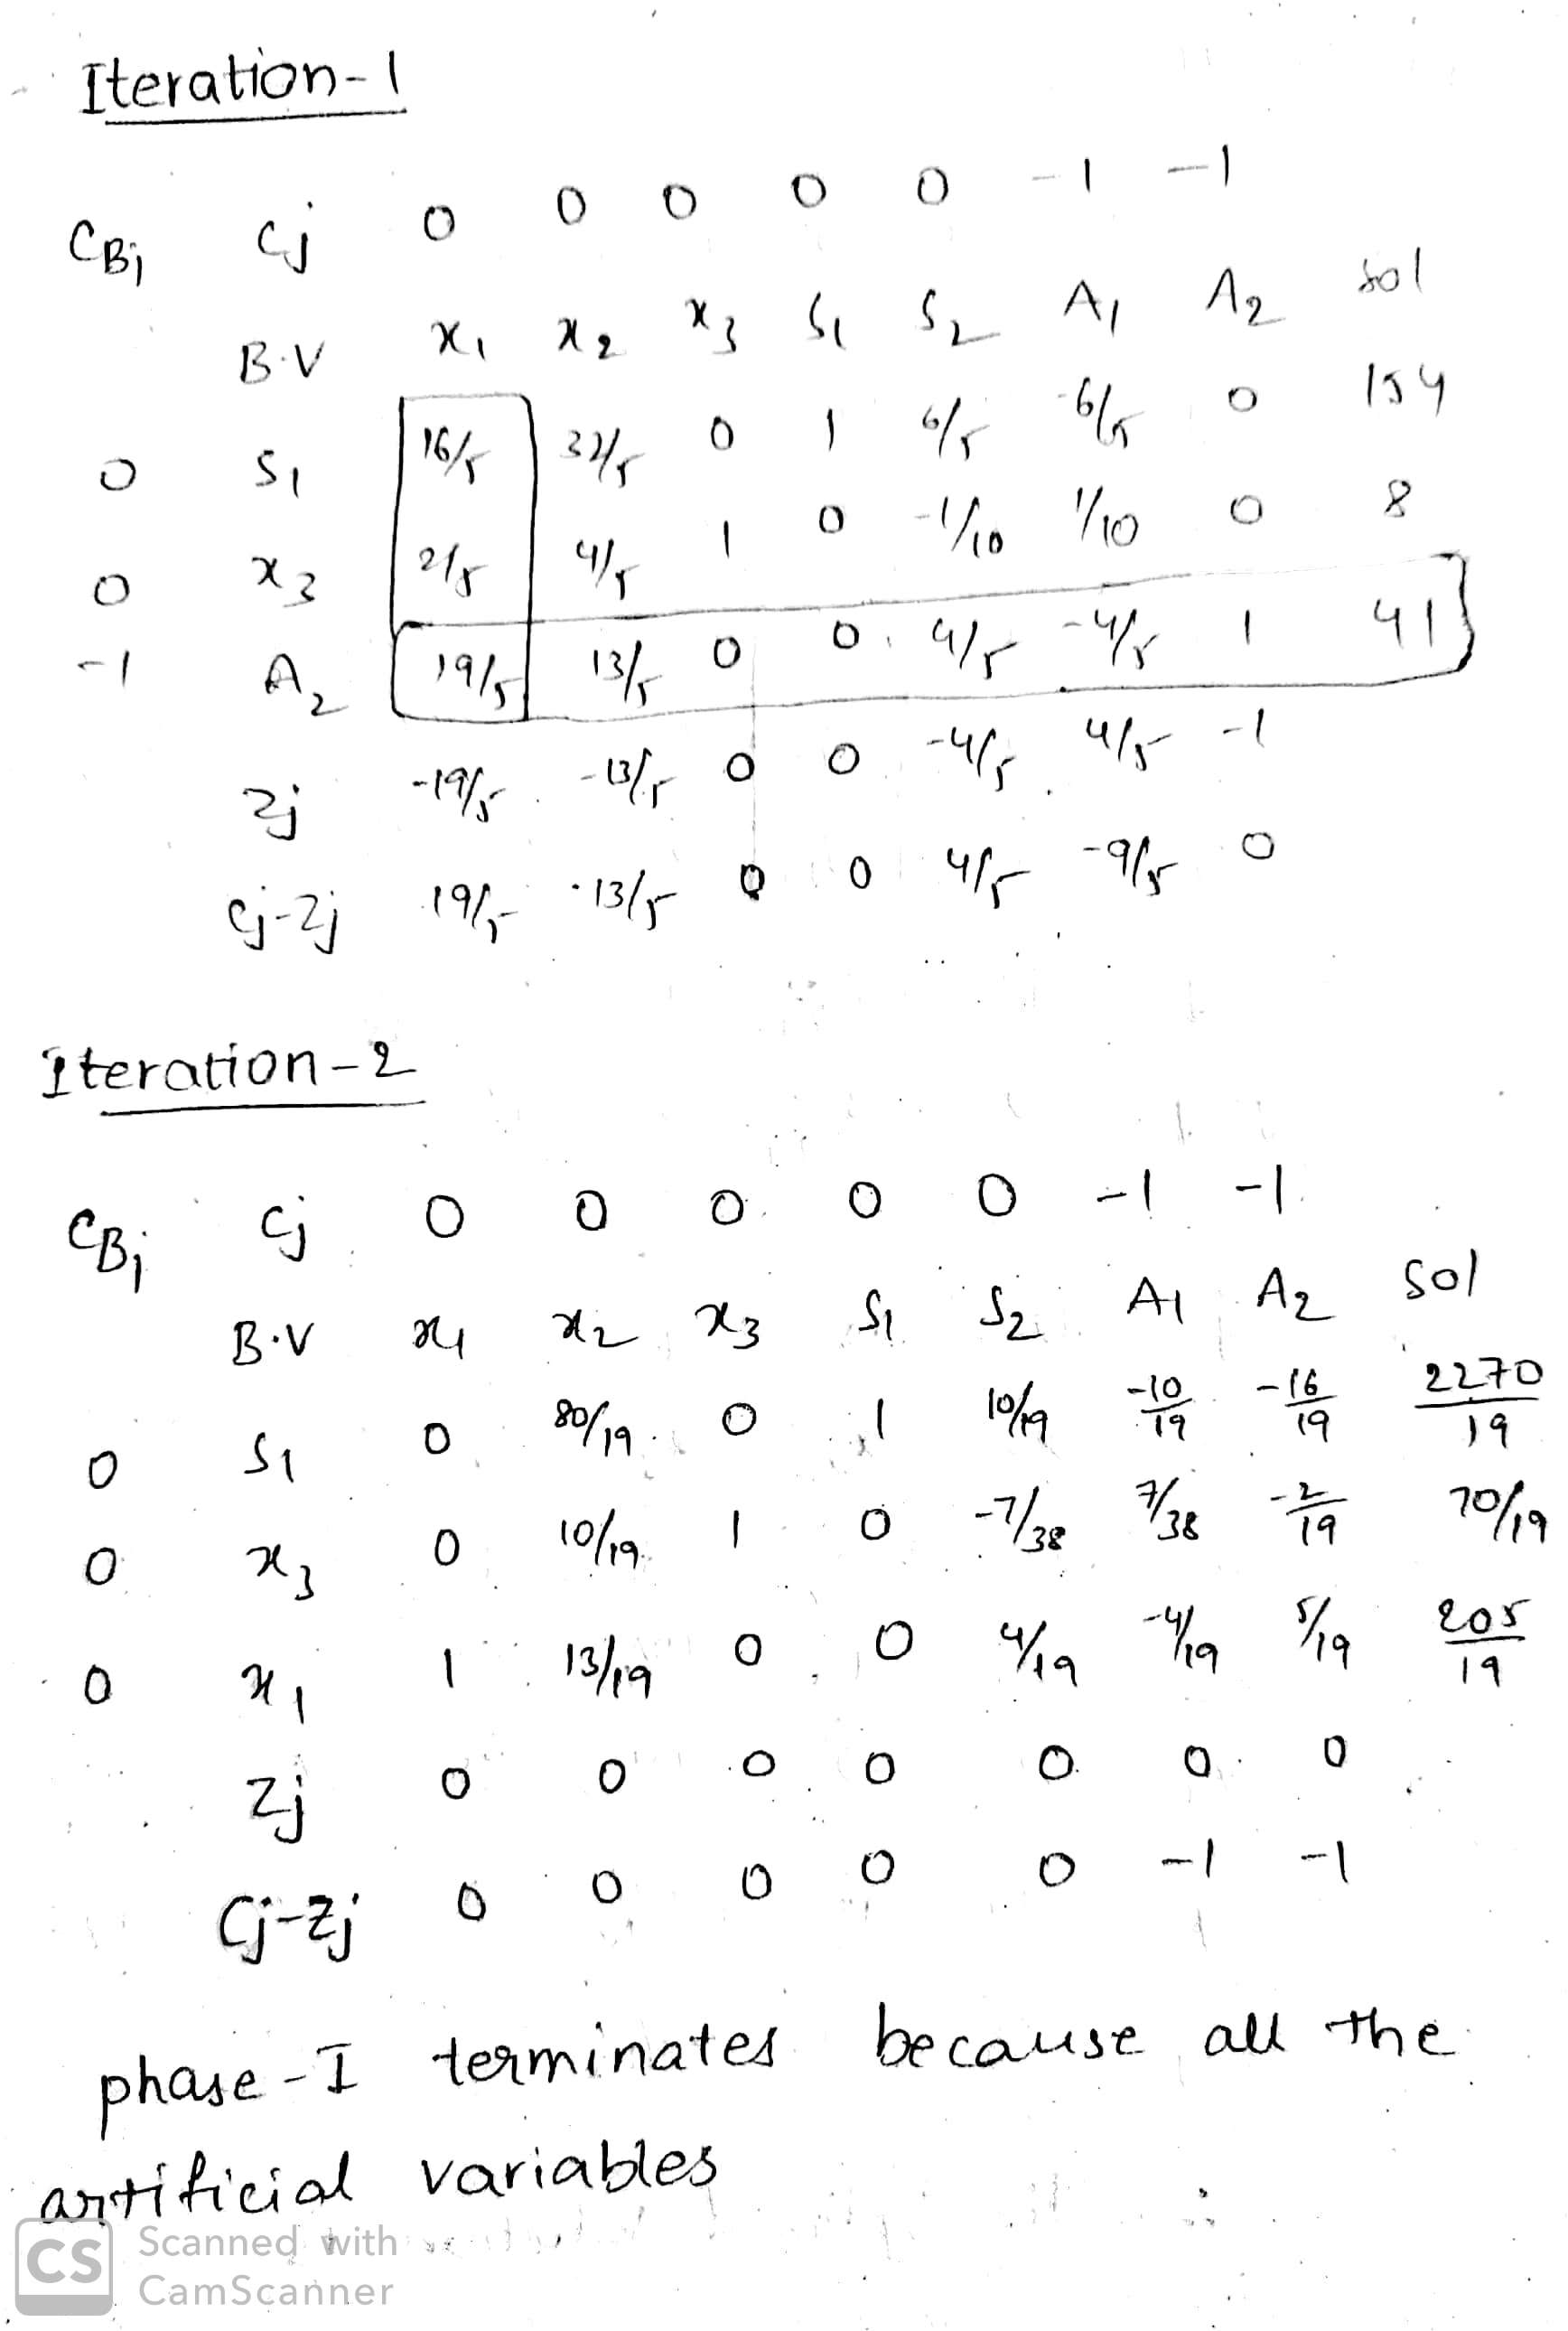 Iteration-1
CBi Cj 0 0 0 0 0 -1 -1
B.V x1 x2 x3 S1 S2 A1 A2 sol
0 S1 16/5 32/5 0 1 6/5 -6/5 0 154
0 x3 2/5 4/5 1 0 -1/10 1/10 0 8
-1 A2 19/5 13/5 0 0 4/5 -4/5 1 41
Zj -19/5 -13/5 0 0 -4/5 4/5 -1
Cj-Zj 19/5 13/5 0 0 4/5 -9/5 0
Iteration-2
CBi Cj 0 0 0 0 0 -1 -1
B.V x1 x2 x3 S1 S2 A1 A2 Sol
0 S1 0 80/19 0 1 10/19 -10/19 -16/19 2270/19
0 x3 0 10/19 1 0 -7/38 7/38 -2/19 70/19
0 x1 1 13/19 0 0 4/19 -4/19 5/19 205/19
Zj 0 0 0 0 0 0 0
Cj-Zj 0 0 0 0 0 -1 -1
phase-I terminates because all the
artificial variables
CS Scanned with
CamScanner